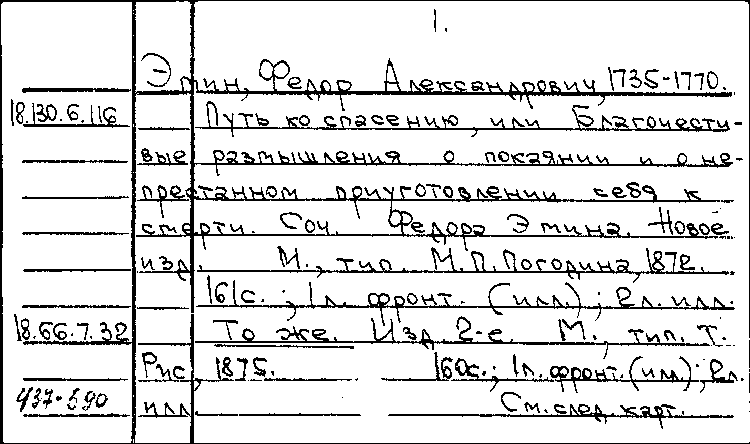 1.
Эмин, Федор Александрович, 1735-1770.
18.130.6.116 Путь ко спасению, или Благочести-
вые размышления о покаянии и о не-
престанном приуготовлении себя к
смерти. Соч. Федора Эмина. Новое
изд. М., тип. М.П. Погодина, 1872.
161с.; 1л. фронт. (илл.); 2л. илл.
18.66.7.32 То же. Изд. 2-е. М., тип. Т.
Рис, 1875. 160с.; 1л. фронт. (илл.); 2л.
437-690 илл. См. след. карт.